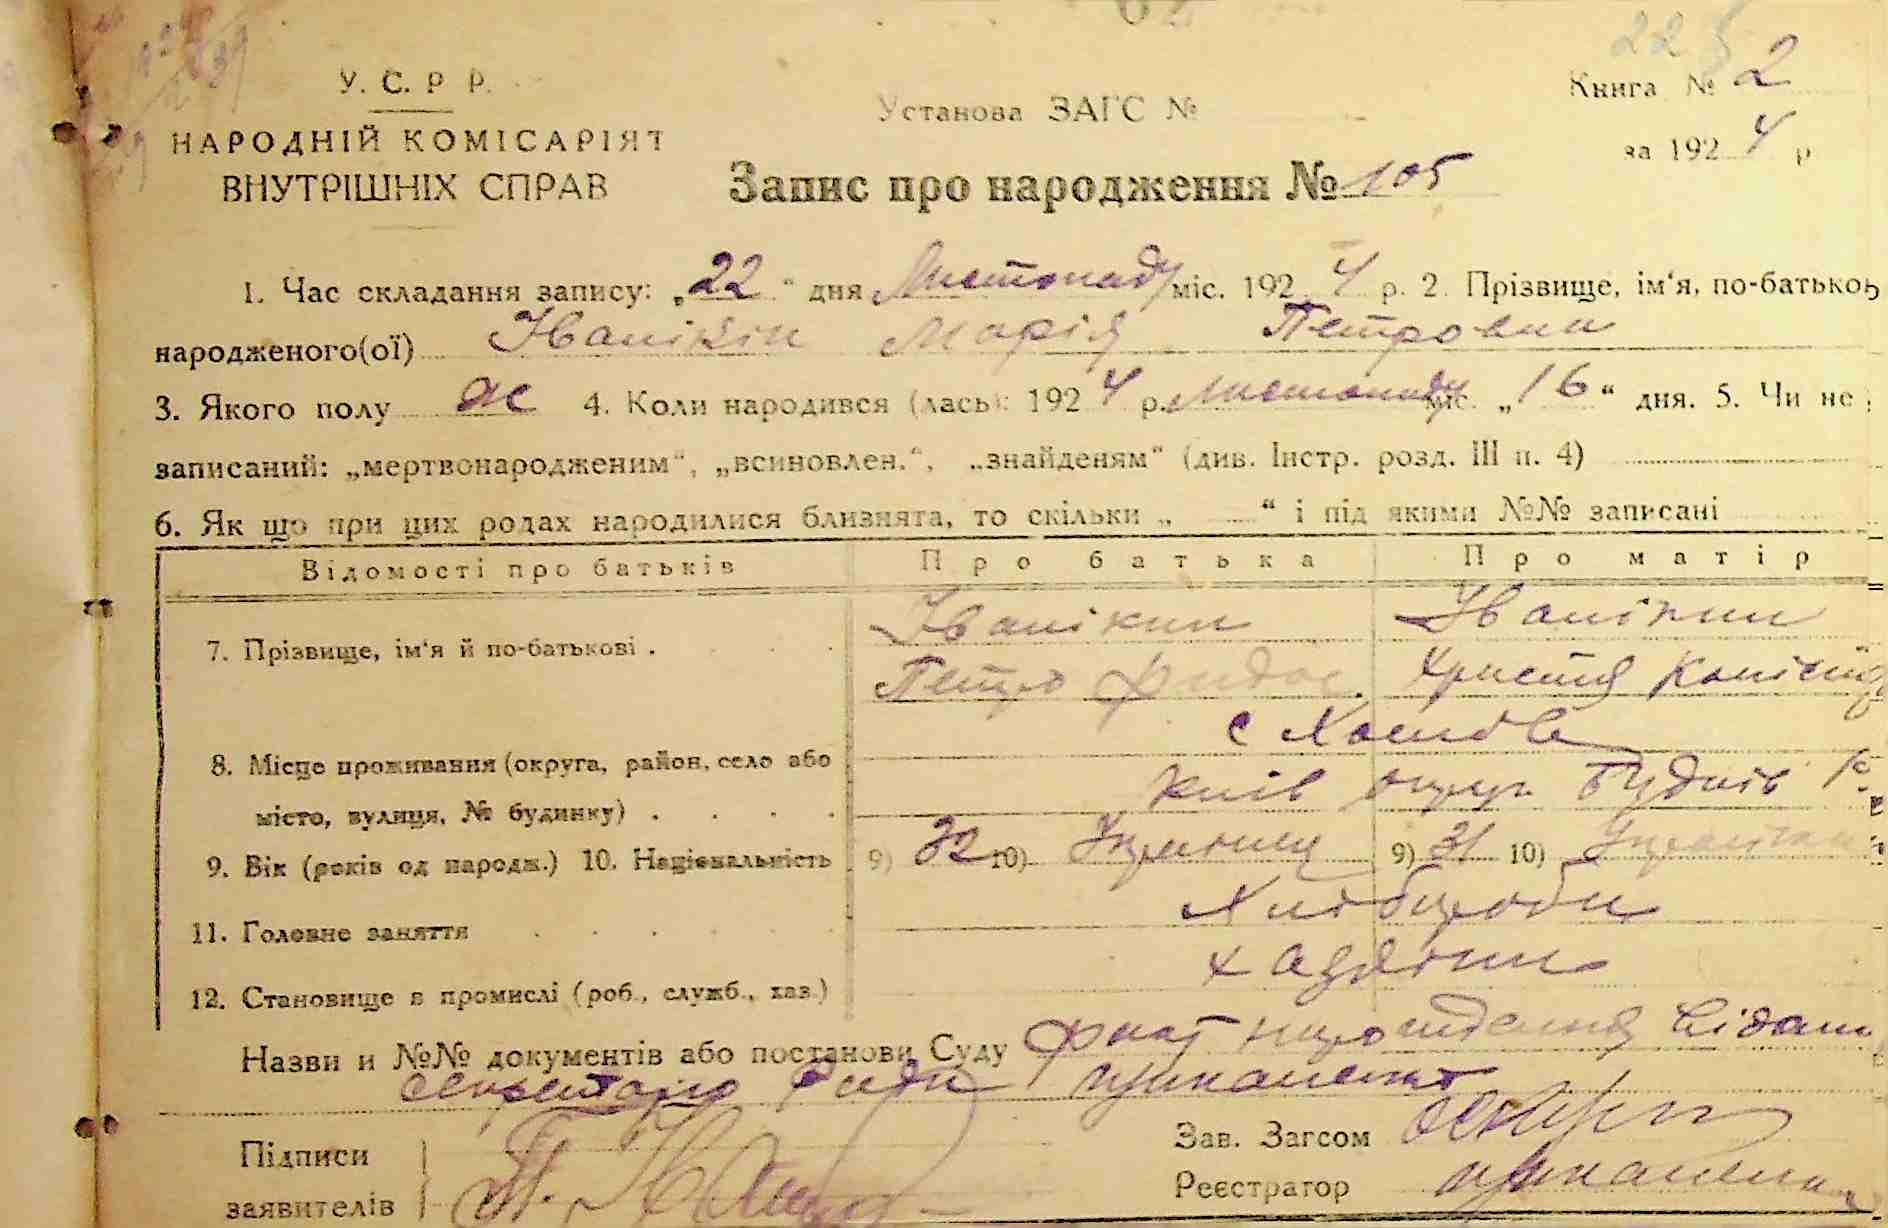 22
Книга № 2
У. С. Р Р.
Установа ЗАГС №
за 1924 р
НАРОДНІЙ КОМІСАРІЯТ
ВНУТРІШНІХ СПРАВ
Запис про народження № 105
1. Час складання запису: „22“ дня Листопаду міс. 1924 р. 2. Прізвище, ім‘я, по-батьков
народженого(ої) Іванікін Марія Петровна
3. Якого полу ж 4. Коли народився (лась): 1924 р. Листопаду міс. „16“ дня. 5. Чи не
записаний: „мертвонародженим“, „всиновлен.“, „знайденям“ (див. Інстр. розд. III п. 4)
6. Як що при цих родах народилися близнята, то скільки „ “ і під якими №№ записані
Відомості про батьків Про батька Про матір
7. Прізвище, ім‘я й по-батькові . Іванікин Іванікин
Петро Христя
с
8. Місце проживання (округа, район, село або
Київ округ
місто, вулиця, № будинку) . . . .
9. Вік (років од народж.) 10. Національність 9) 32 10) Украинец 9) 31 10)
11. Головне заняття Хліборобы
12. Становище в промислі (роб., служб., хаз.) хазяіни
Назви и №№ документів або постанови Суду факт народження відом
секретарю Ради
Підписи
заявителів
Зав. Загсом
Реєстратор